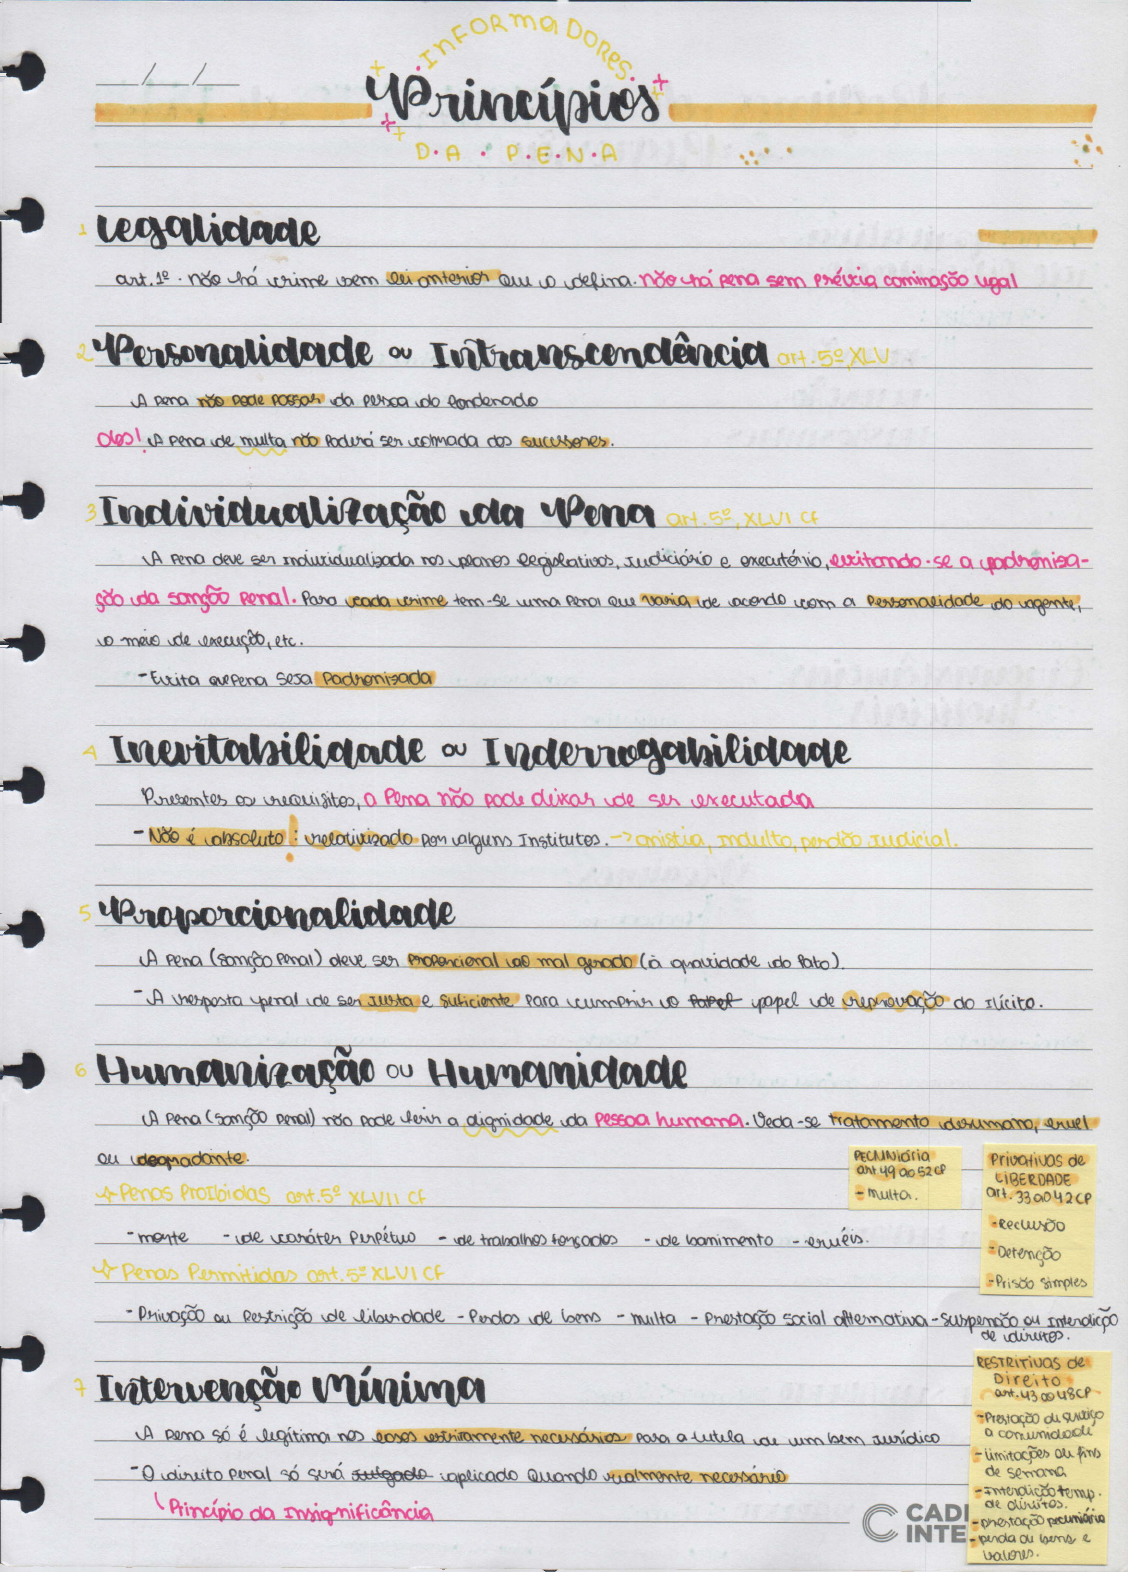 INFORMADORES
Princípios
DA PENA
1 Legalidade
art. 1º. Não há crime sem lei anterior que o defina. Não há pena sem prévia cominação legal
2 Personalidade ou Intranscendência art. 5º, XLV
A pena não pode passar da pessoa do condenado
Obs! A pena de multa não poderá ser cobrada dos sucessores.
3 Individualização da Pena art. 5º, XLVI CF
A pena deve ser individualizada nos planos legislativos, judiciário e executório, evitando-se a padroniza-
ção da sanção penal. Para cada crime tem-se uma pena que varia de acordo com a personalidade do agente,
o meio de execução, etc.
- Evita que pena seja padronizada
4 Inevitabilidade ou Inderrogabilidade
Presentes os requisitos, a pena não pode deixar de ser executada
- Não é absoluto! : relativizado por alguns Institutos. → anistia, indulto, perdão judicial.
5 Proporcionalidade
A pena (sanção penal) deve ser proporcional ao mal gerado (à gravidade do fato).
- A resposta penal de ser justa e suficiente para cumprir o papel papel de reprovação do ilícito.
6 Humanização ou Humanidade
A pena (sanção penal) não pode ferir a dignidade da pessoa humana. Veda-se tratamento desumano, cruel
ou degradante.
Penas Proibidas art. 5º XLVII CF
- morte - de caráter perpétuo - de trabalhos forçados - de banimento - cruéis.
Penas Permitidas art. 5º XLVI CF
- Privação ou Restrição de liberdade - Perdas de bens - multa - Prestação social alternativa - Suspensão ou Interdição
de direitos.
PECUNiária
art. 49 ao 52 CP
- multa.
Privativas de
LIBERDADE
art. 33 ao 42 CP
- Reclusão
- Detenção
- Prisão simples
7 Intervenção Mínima
A pena só é legítima nos casos estritamente necessários para a tutela de um bem jurídico
- O direito penal só será julgado aplicado quando realmente necessário
Princípio da Insignificância
RESTRITIVAS de
Direito
art. 43 ao 48 CP
- Prestação de serviço
a comunidade
- limitações de fins
de semana
- Interdição temp.
de direitos.
- prestação pecuniária
- perda de bens e
valores.
CADI
INTE